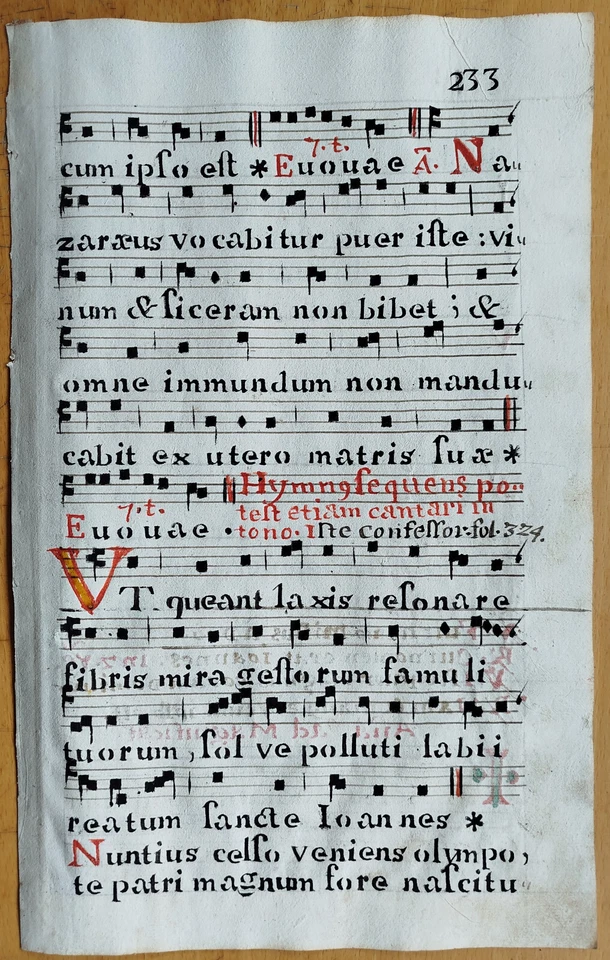 233
cum ipſo eſt * Euouae 7.t. Ā. Na
zaræus vocabitur puer iſte : vi
num & ſiceram non bibet ; &
omne immundum non mandu
cabit ex utero matris ſuæ *
Hymnꝰ ſequens po
7.t. teſt etiam cantari in
Euouae . tono. Iſte confeſſor. fol. 324.
VT queant laxis reſonare
fibris mira geſtorum famuli
tuorum, ſol ve polluti labii
reatum ſancte Ioannes *
Nuntius celſo veniens olympo,
te patri magnum fore naſcitu